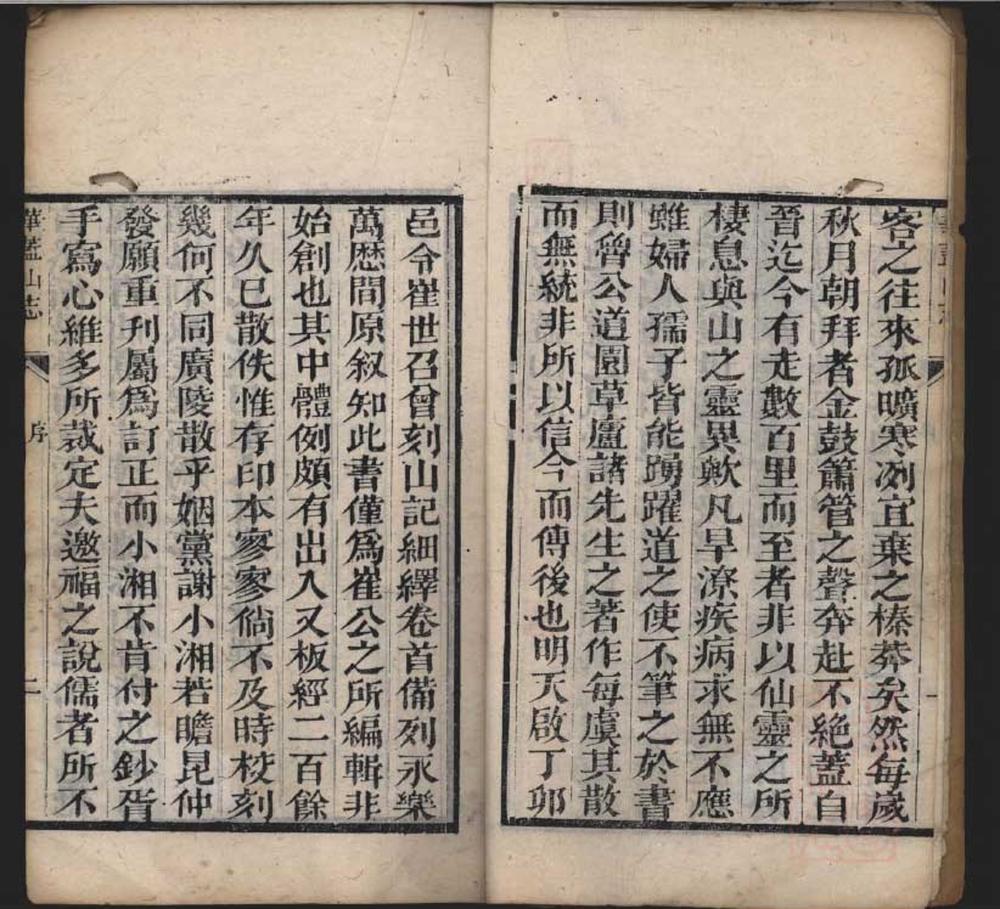 客之往來孤曠寒冽宜棄之榛莽矣然每歲
秋月朝拜者金鼓簫管之聲奔赴不絕蓋自
晉迄今有走數百里而至者非以仙靈之所
棲息與山之靈異歟凡旱潦疾病求無不應
雖婦人孺子皆能踴躍道之使不筆之於書
則曾公道園草廬諸先生之著作每虞其散
而無統非所以信今而傳後也明天啟丁卯
邑令崔世召曾刻山記細繹卷首備列永樂
萬歷間原叙知此書僅爲崔公之所編輯非
始創也其中體例頗有出入又板經二百餘
年久已散佚惟存印本寥寥倘不及時校刻
幾何不同廣陵散乎姻黨謝小湘若瞻昆仲
發願重刊屬爲訂正而小湘不肯付之鈔胥
手寫心維多所裁定夫邀福之說儒者所不
華蓋山志
序
二